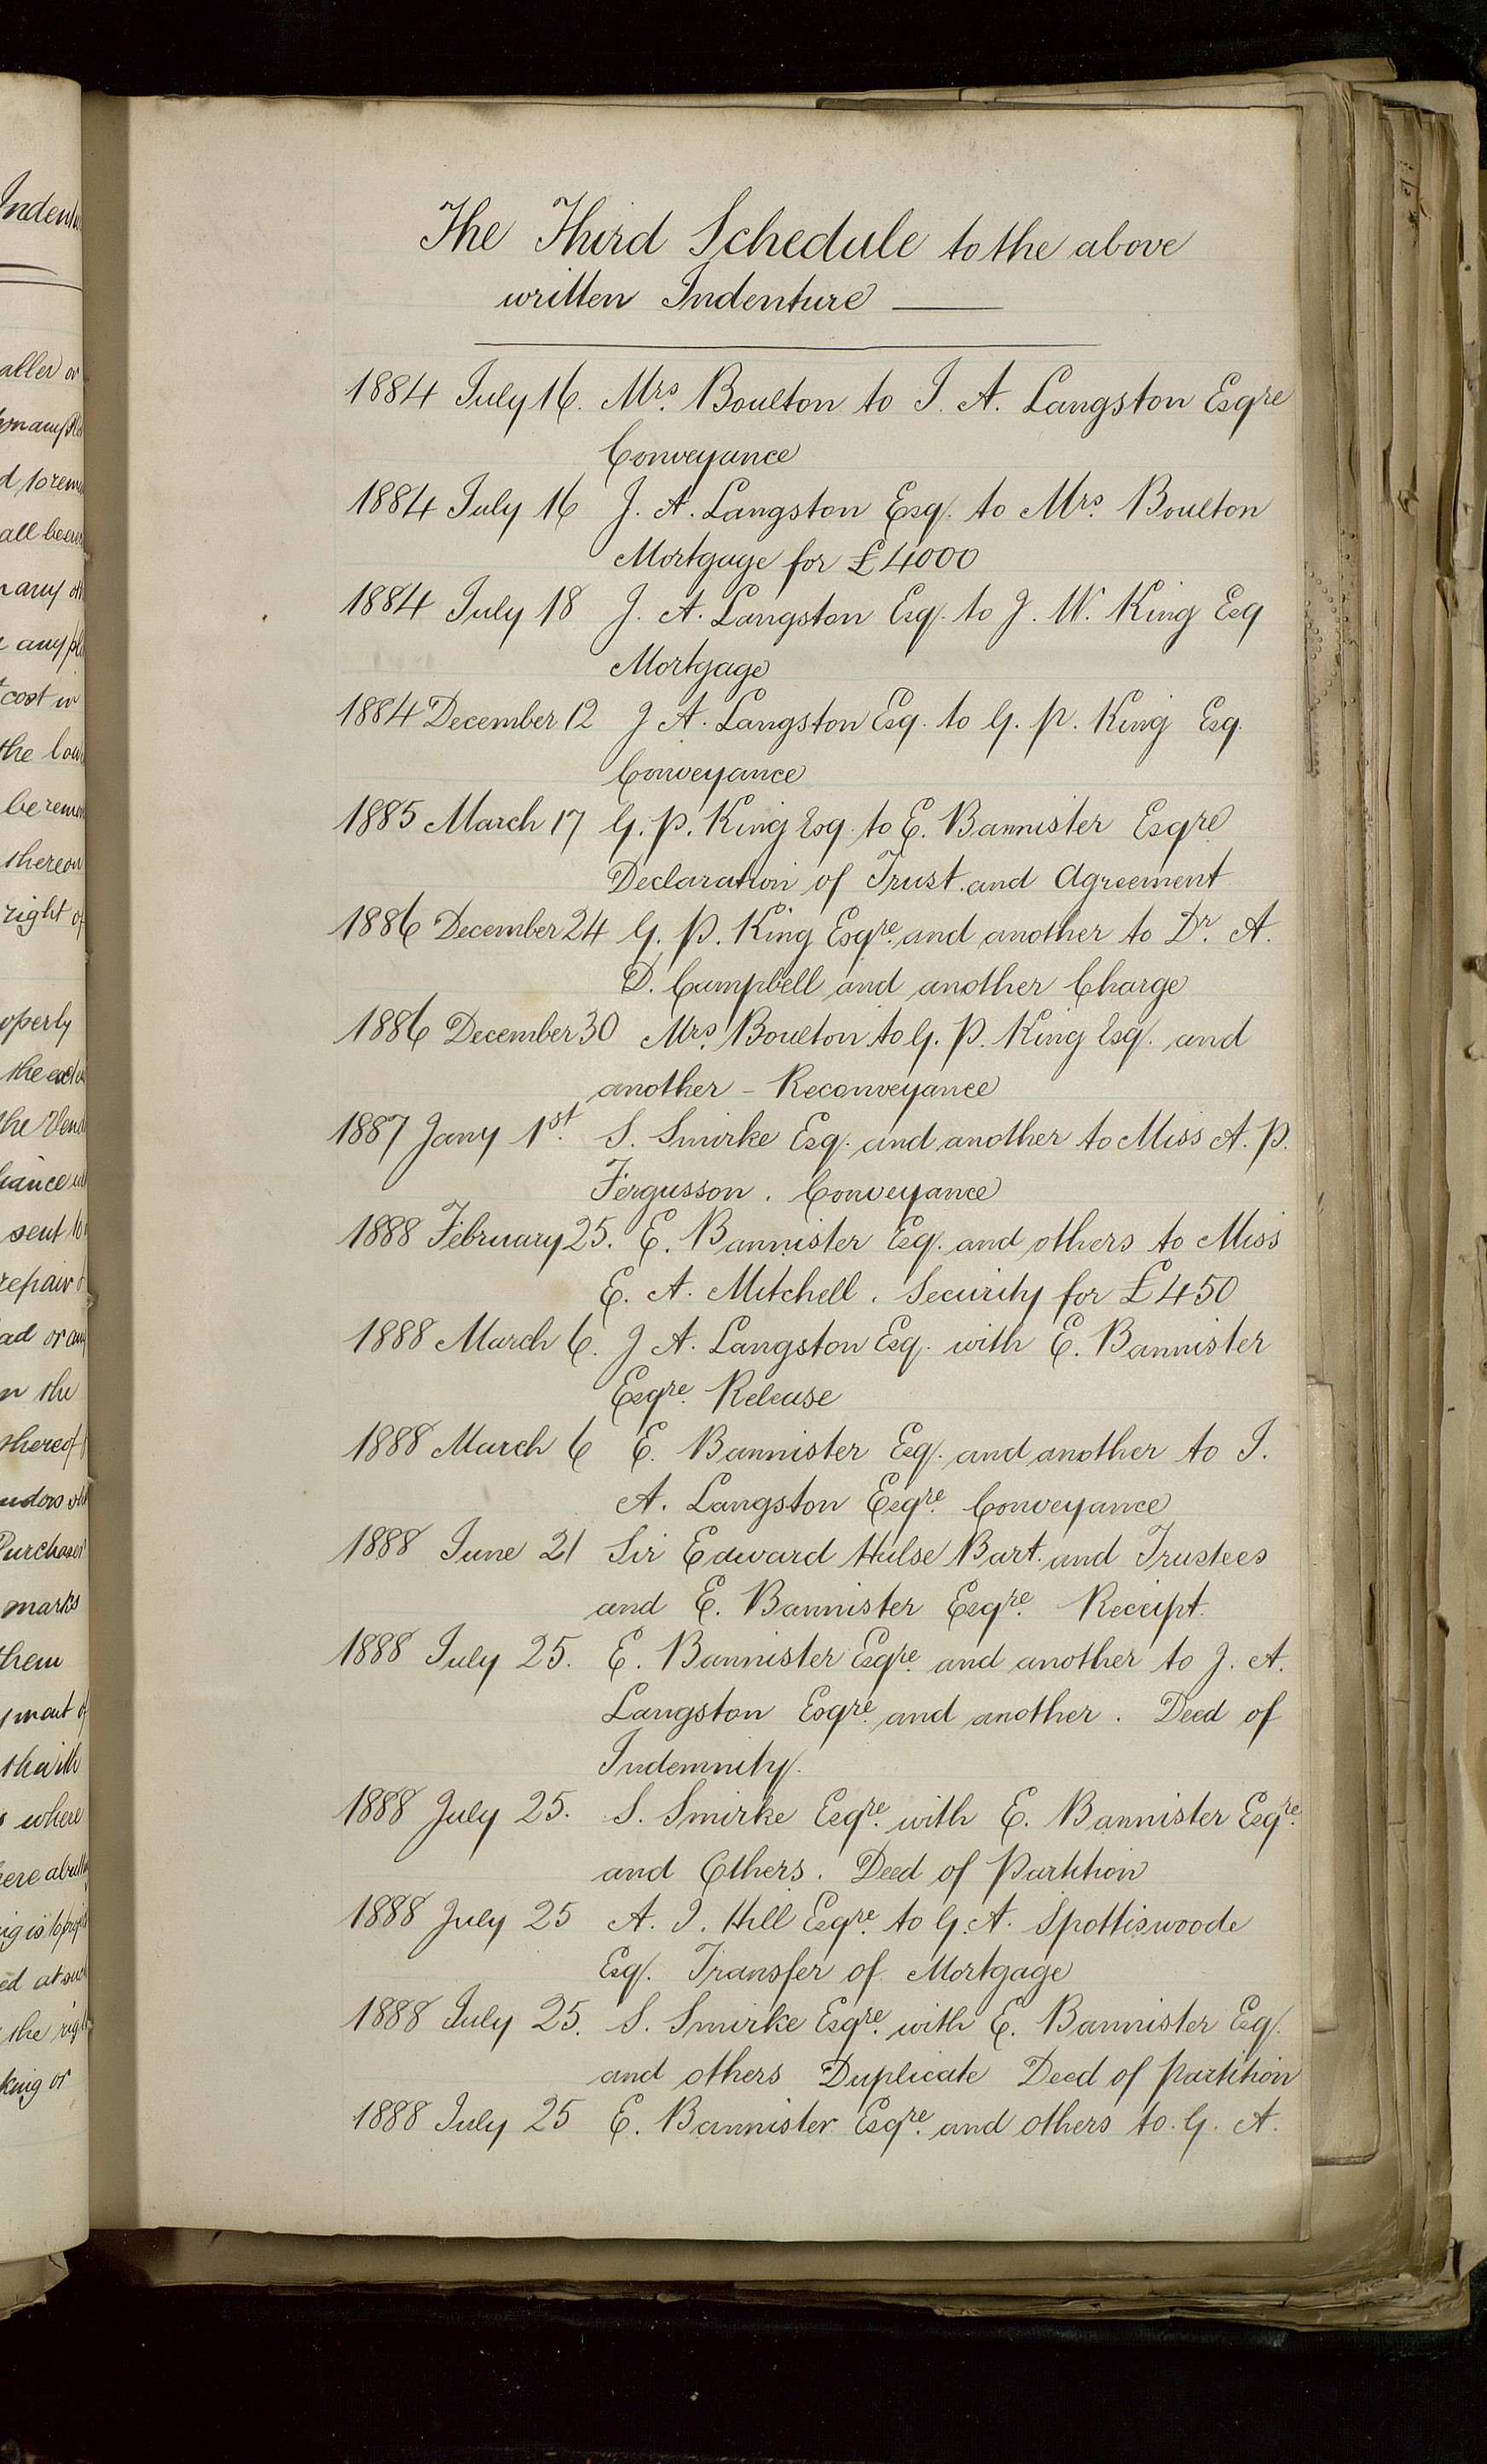 The Third Schedule to the above
written Indenture
1884 July 16. Mrs. Boulton to J. A. Langston Esqre
Conveyance
1884 July 16 J. A. Langston Esq. to Mrs. Boulton
Mortgage for £4000
1884 July 18 J. A. Langston Esq. to J. W. King Esq
Mortgage
1884 December 12 J A. Langston Esq. to G. P. King Esq.
Conveyance
1885 March 17 G. P. King Esq. to E. Bannister Esqre
Declaration of Trust and Agreement
1886 December 24 G. P. King Esqre. and another to Dr. A.
D. Campbell and another Charge
1886 December 30 Mrs. Boulton to G. P. King Esq. and
another - Reconveyance
1887 Jany 1st. S. Smirke Esq. and another to Miss A. P.
Fergusson. Conveyance
1888 February 25. E. Bannister Esq. and others to Miss
E. A. Mitchell. Security for £450
1888 March 6. J A. Langston Esq. with E. Bannister
Esqre. Release
1888 March 6 E. Bannister Esq. and another to J.
A. Langston Esqre. Conveyance
1888 June 21 Sir Edward Hulse Bart. and Trustees
and E. Bannister Esqre. Receipt.
1888 July 25. E. Bannister Esqre. and another to J. A.
Langston Esqre. and another. Deed of
Indemnity.
1888 July 25. S. Smirke Esqre. with E. Bannister Esqre.
and Others. Deed of Partition
1888 July 25 A. J. Hill Esqre. to G. A. Spottiswoode
Esq. Transfer of Mortgage
1888 July 25. S. Smirke Esqre. with E. Bannister Esq.
and others Duplicate Deed of Partition
1888 July 25 E. Bannister Esqre. and others to G. A.